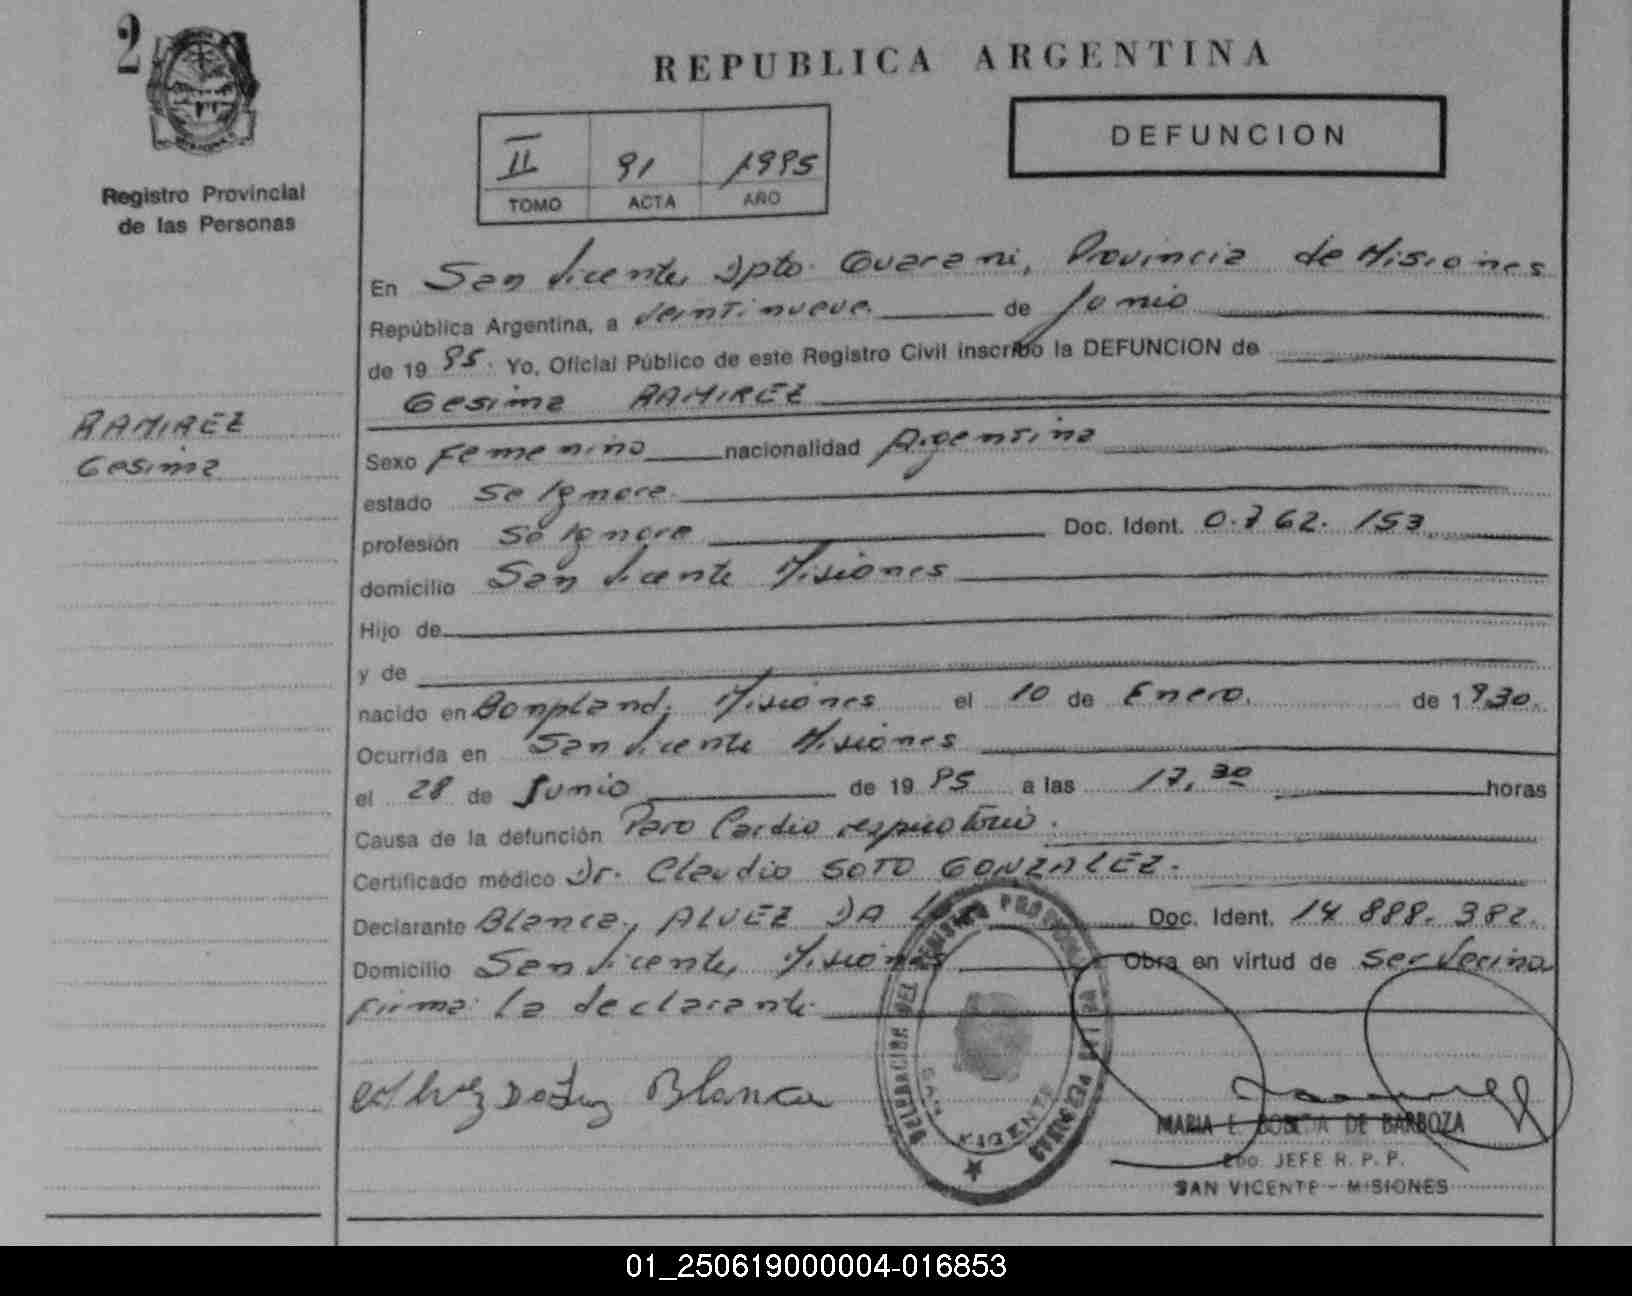 2
Registro Provincial
de las Personas
RAMIREZ
Gesima
REPUBLICA ARGENTINA
II 91 1995
TOMO ACTA AÑO
DEFUNCION
En San Vicente, Dpto. Guarani, Provincia de Misiones
República Argentina, a veintinueve de Junio
de 1995. Yo, Oficial Público de este Registro Civil inscribo la DEFUNCION de
Gesima RAMIREZ
Sexo Femenino nacionalidad Argentina
estado Se Ignora
profesión Se Ignora Doc. Ident. 0.762.153
domicilio San Vicente Misiones
Hijo de
y de
nacido en Bonpland, Misiones el 10 de Enero. de 1930.
Ocurrida en San Vicente Misiones
el 28 de Junio de 1995 a las 17,30 horas
Causa de la defunción Paro Cardio respiratorio.
Certificado médico Dr. Claudio SOTO GONZALEZ.
Declarante Blanca, ALVEZ DA Doc. Ident. 14.888.382.
Domicilio San Vicente, Misiones Obra en virtud de ser Vecina
Firma: La declarante.
Blanca
DELEGACION DEL REGISTRO PROVINCIAL DE LAS PERSONAS
SAN VICENTE
MARIA L. DE BARBOZA
2do. JEFE R. P. P.
SAN VICENTE - MISIONES
01_250619000004-016853